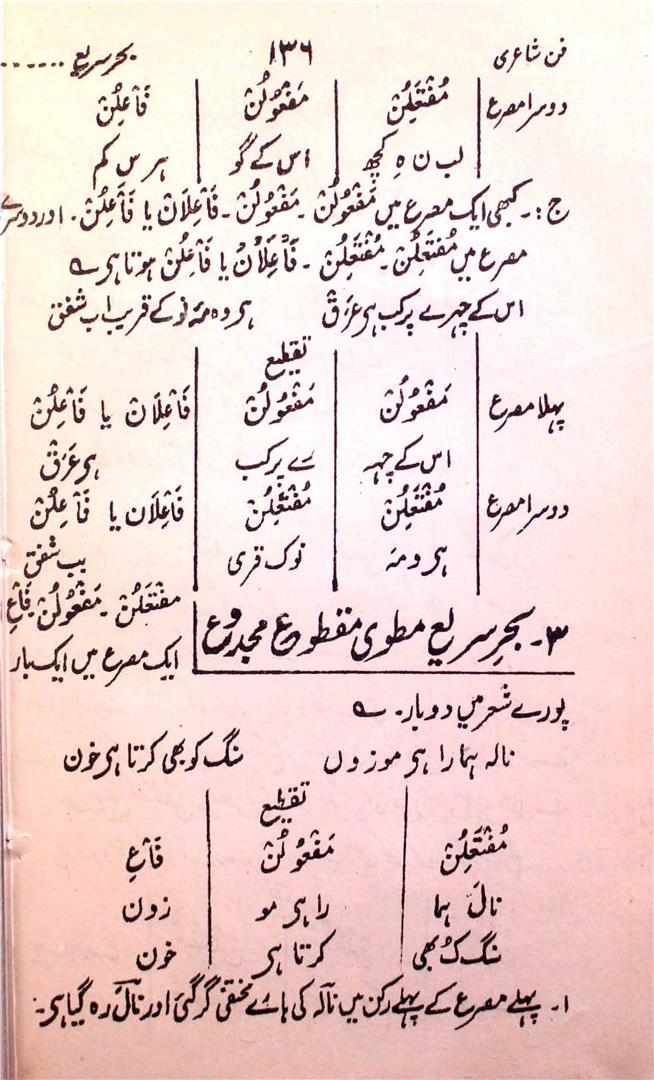 فن شاعری ۱۳۶ بحر سریع ......
دوسرا مصرع مُفْتَعِلُنْ مَفْعُوْلُنْ فَاعِلُنْ
لب ن ہِ کچھ اس کے گو ہر س کم
ج :۔ کبھی ایک مصرع میں مَفْعُوْلُنْ ۔ مَفْعُوْلُنْ ۔ فَاعِلَانْ یا فَاعِلُنْ ۔ اور دوسرے
مصرع میں مُفْتَعِلُنْ ۔ مُفْتَعِلُنْ ۔ فَاعِلَانْ یا فَاعِلُنْ ہوتا ہی ؎
اس کے چہرے پر کب ہی عَرَقْ ہی وہ مہِ نو کے قریب اب شفق
تقطیع
پہلا مصرع مَفْعُوْلُنْ مَفْعُوْلُنْ فَاعِلَانْ یا فَاعِلُنْ
اس کے چہہ رے پر کب ہی عَرَقْ
دوسرا مصرع مُفْتَعِلُنْ مُفْتَعِلُنْ فَاعِلَانْ یا فَاعِلُنْ
ہی و مہَ نوک قری بب شفق
۳۔ بحرِ سریع مطوی مقطوع مجدوع
مُفْتَعِلُنْ ۔ مَفْعُوْلُنْ ۔ فَاعِ
ایک مصرع میں ایک بار
پورے شعر میں دو بار۔ ؎
نالہ ہمارا ہی موزوں سنگ کو بھی کرتا ہی خون
تقطیع
مُفْتَعِلُنْ مَفْعُوْلُنْ فَاعِ
نالَ ہما را ہی مو زون
سنگ کُ بھی کرتا ہی خون
۱۔ پہلے مصرع کے پہلے رکن میں نالہ کی ہائے مختفی گر گئی اور نالَ رہ گیا ہی۔